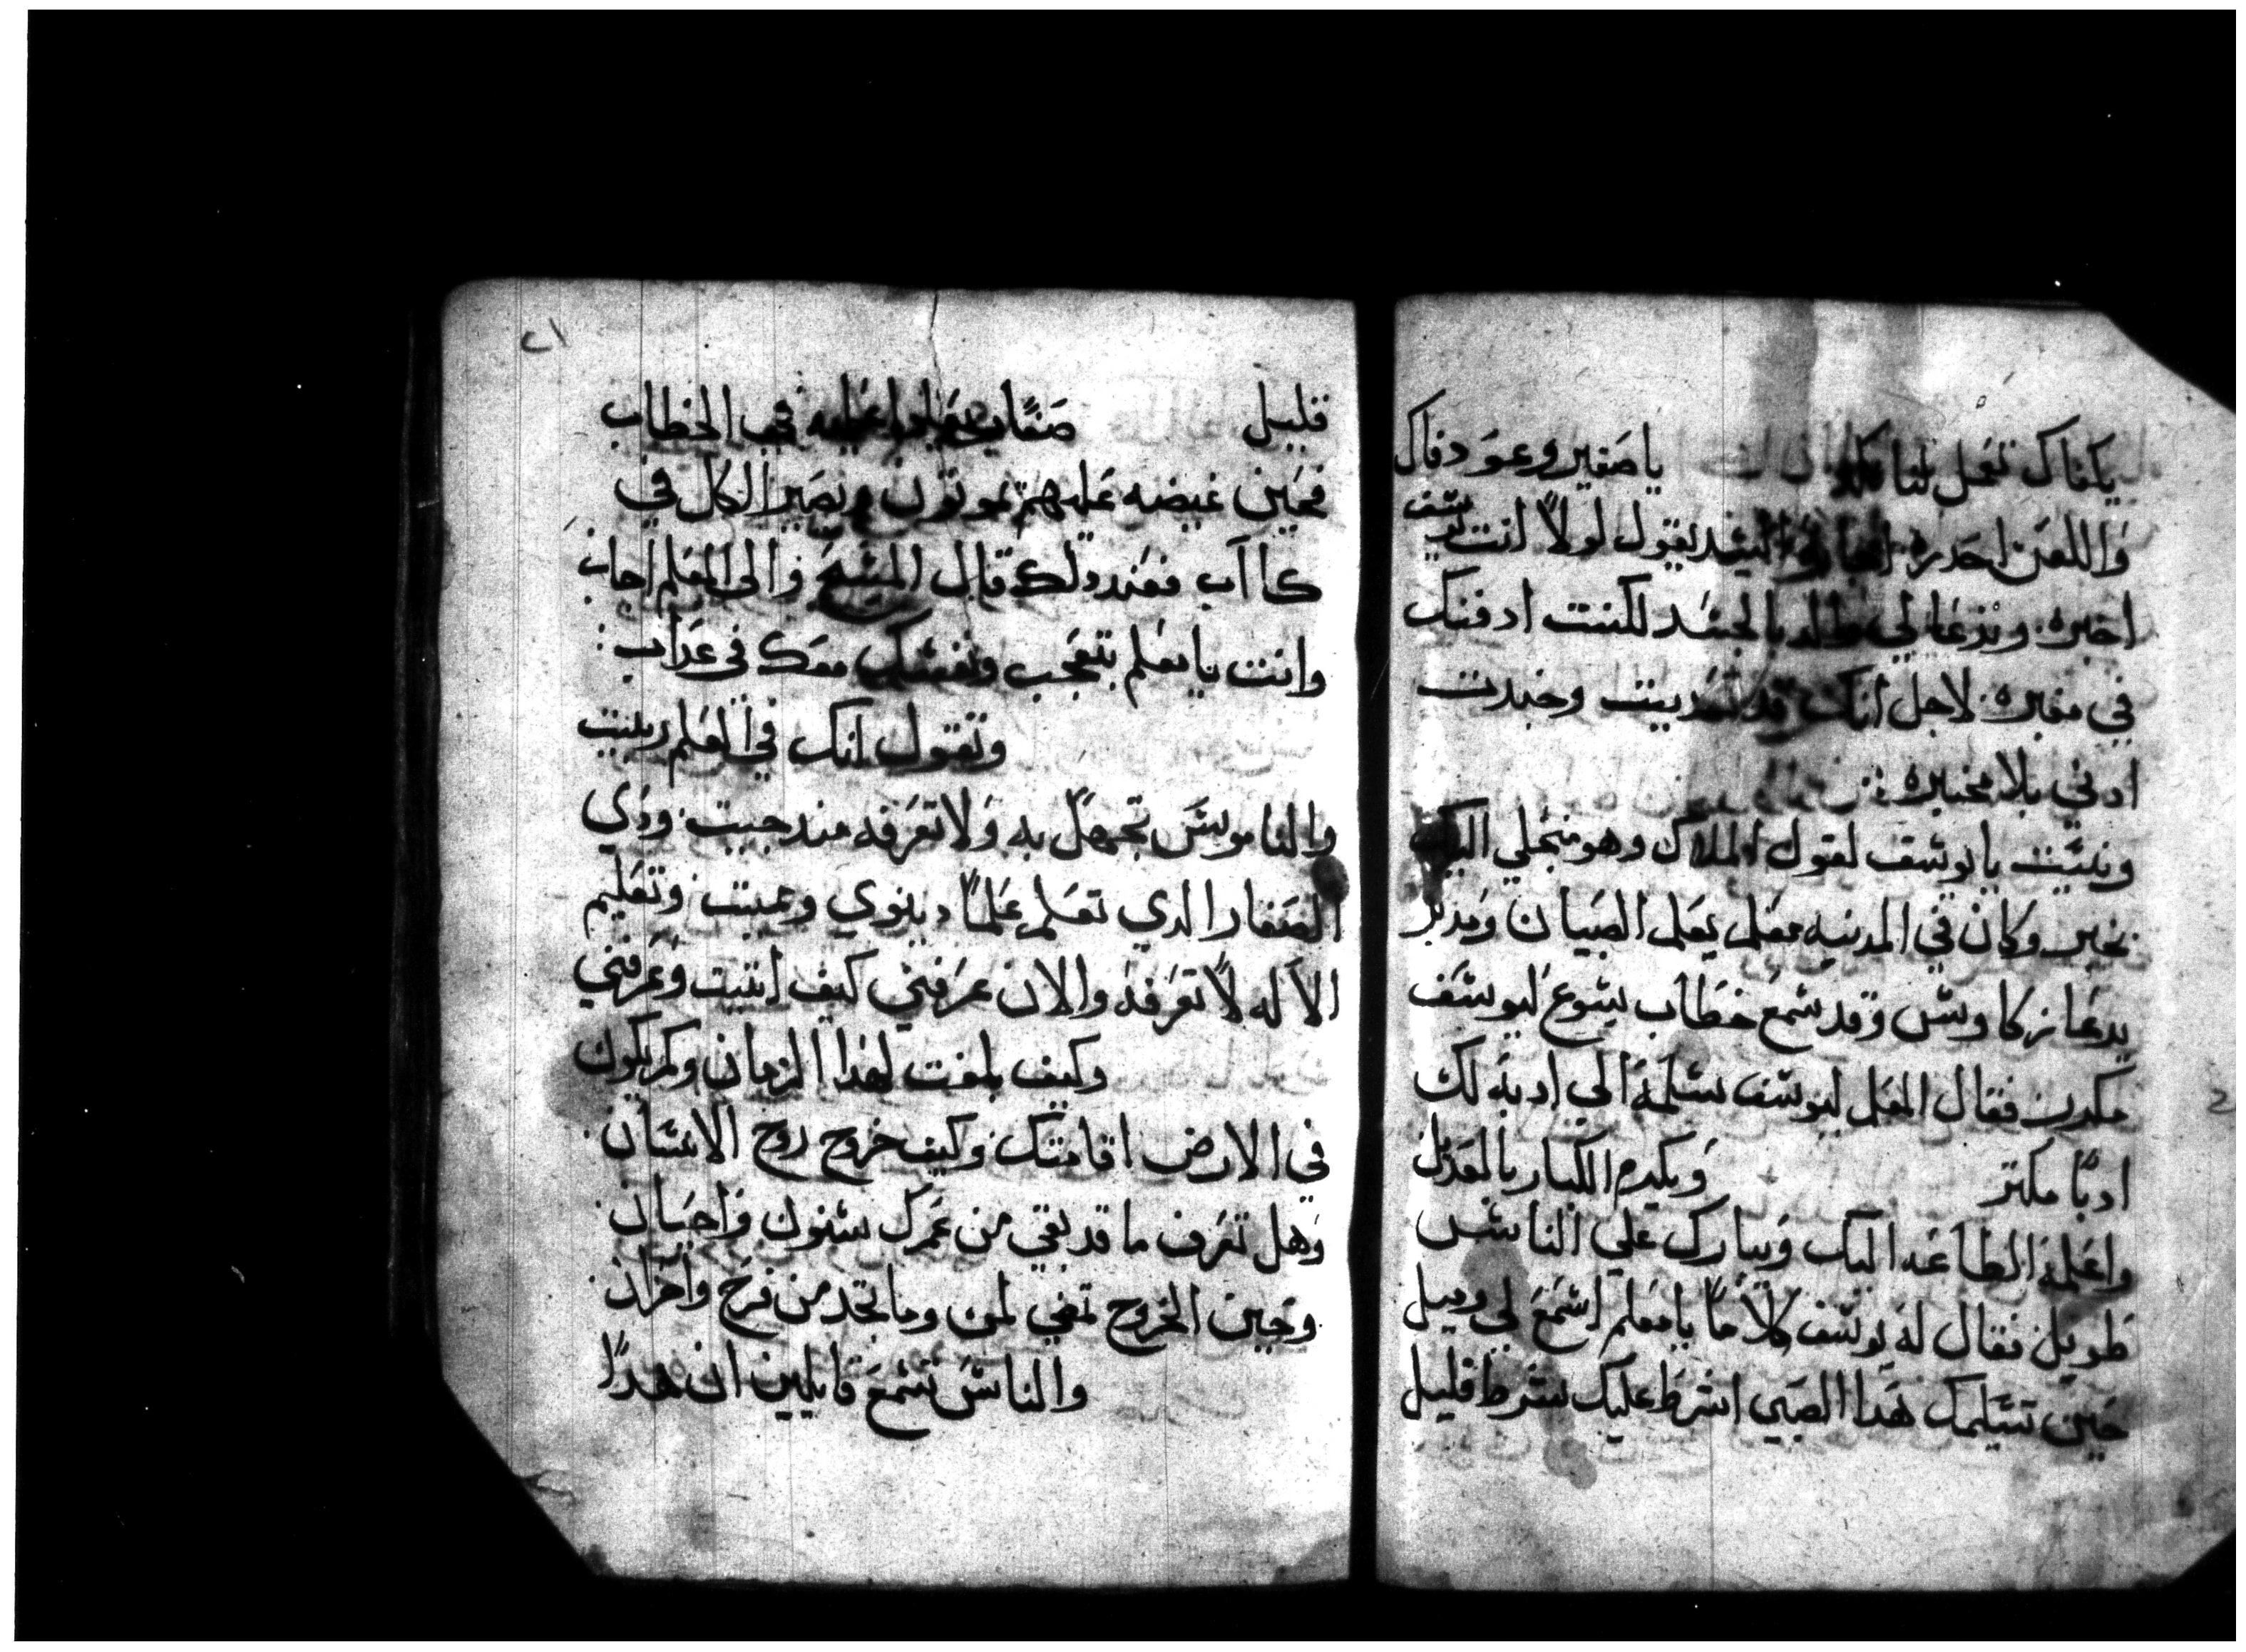 يكفاك تعمل لنا يا صغير وعود فاك
واللعن احدره السيد يقول لولا انت يوسف
اخيره وتدعا لي بالجسد لكنت ادفنك
في مقبره لاجل انك قد وخبرت
ادني بلا مخبره
ونسيت يا يوسف لقول الملاك وهو منجلي اليك
بخير وكان في المدينه معلم يعلم الصبيان ومدبر
يدعا زكاوس وقد سمع خطاب يسوع ليوسف
مكدرن فقال المعلم ليوسف سلمه الي ادبه لك
ادبًا مكتر ويكرم الكبار بالعدل
واعلمه الطاعه اليك ويبارك علي الناس
طويل فقال له يوسف كلامًا يا معلم اسمع لي وميل
حين تسلمك هدا الصبي اشرط عليك شرط قليل
٢١
قليل في الخطاب
فحين غيضه عليهم يموتون ويصير الكل في
كااب فعند دلك قال المسيح والي المعلم اجاب
وانت يا معلم بتعجب ونفسك معك في عداب
وتقول انك في العلم ربيت
والناموس تجهل به ولا تعرفه مند جيت ودي
الصغار الدي تعلم علمًا دينوي وعميت وتعليم
الاله لا تعرفه والان عرفني كيف اتيت وعرفني
وكيف بلغت لهدا الزمان وكم يكون
في الارض اقامتك وكيف خروج روح الانسان
وهل تعرف ما قد بقي من عمرك سنون واحيان
وحين الخروج تمضي لمن وما تجد من فرح واحزان
والناس تسمع قايلين ان هدا